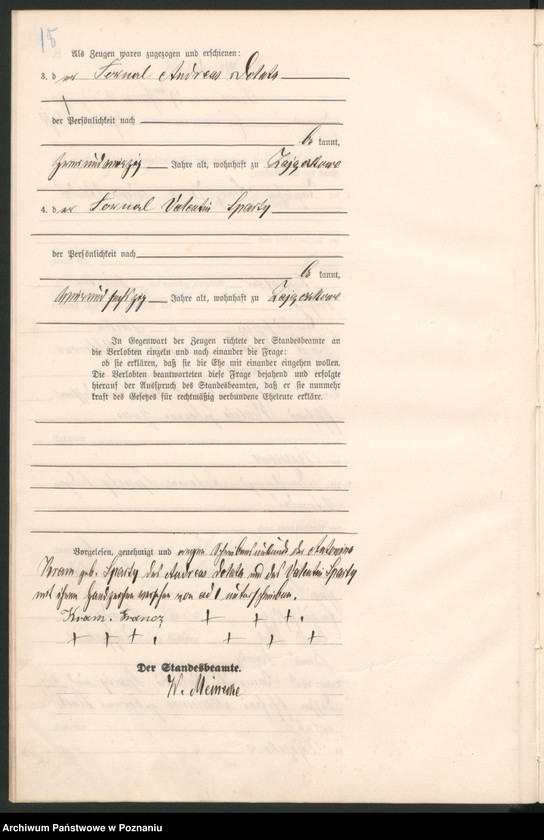 15
Als Zeugen waren zugezogen und erschienen:
3. der Fornal Andreas Dolata
der Persönlichkeit nach
be kannt,
zweiundvierzig Jahre alt, wohnhaft zu Zajączkowo
4. der Fornal Valentin Sparty
der Persönlichkeit nach
be kannt,
Jahre alt, wohnhaft zu Zajączkowo
In Gegenwart der Zeugen richtete der Standesbeamte an
die Verlobten einzeln und nach einander die Frage:
ob sie erklären, daß sie die Ehe mit einander eingehen wollen.
Die Verlobten beantworteten diese Frage bejahend und erfolgte
hierauf der Ausspruch des Standesbeamten, daß er sie nunmehr
kraft des Gesetzes für rechtmäßig verbundene Eheleute erkläre.
Vorgelesen, genehmigt und wegen Schreibensunkunde der Antonina
Kram geb. Sparty des Andreas Dolata und des Valentin Sparty
mit ihren Handzeichen versehen von ad 1 unterschrieben.
Kram. Francz + + +.
+ + +. + + +
Der Standesbeamte.
W. Meinecke
Archiwum Państwowe w Poznaniu